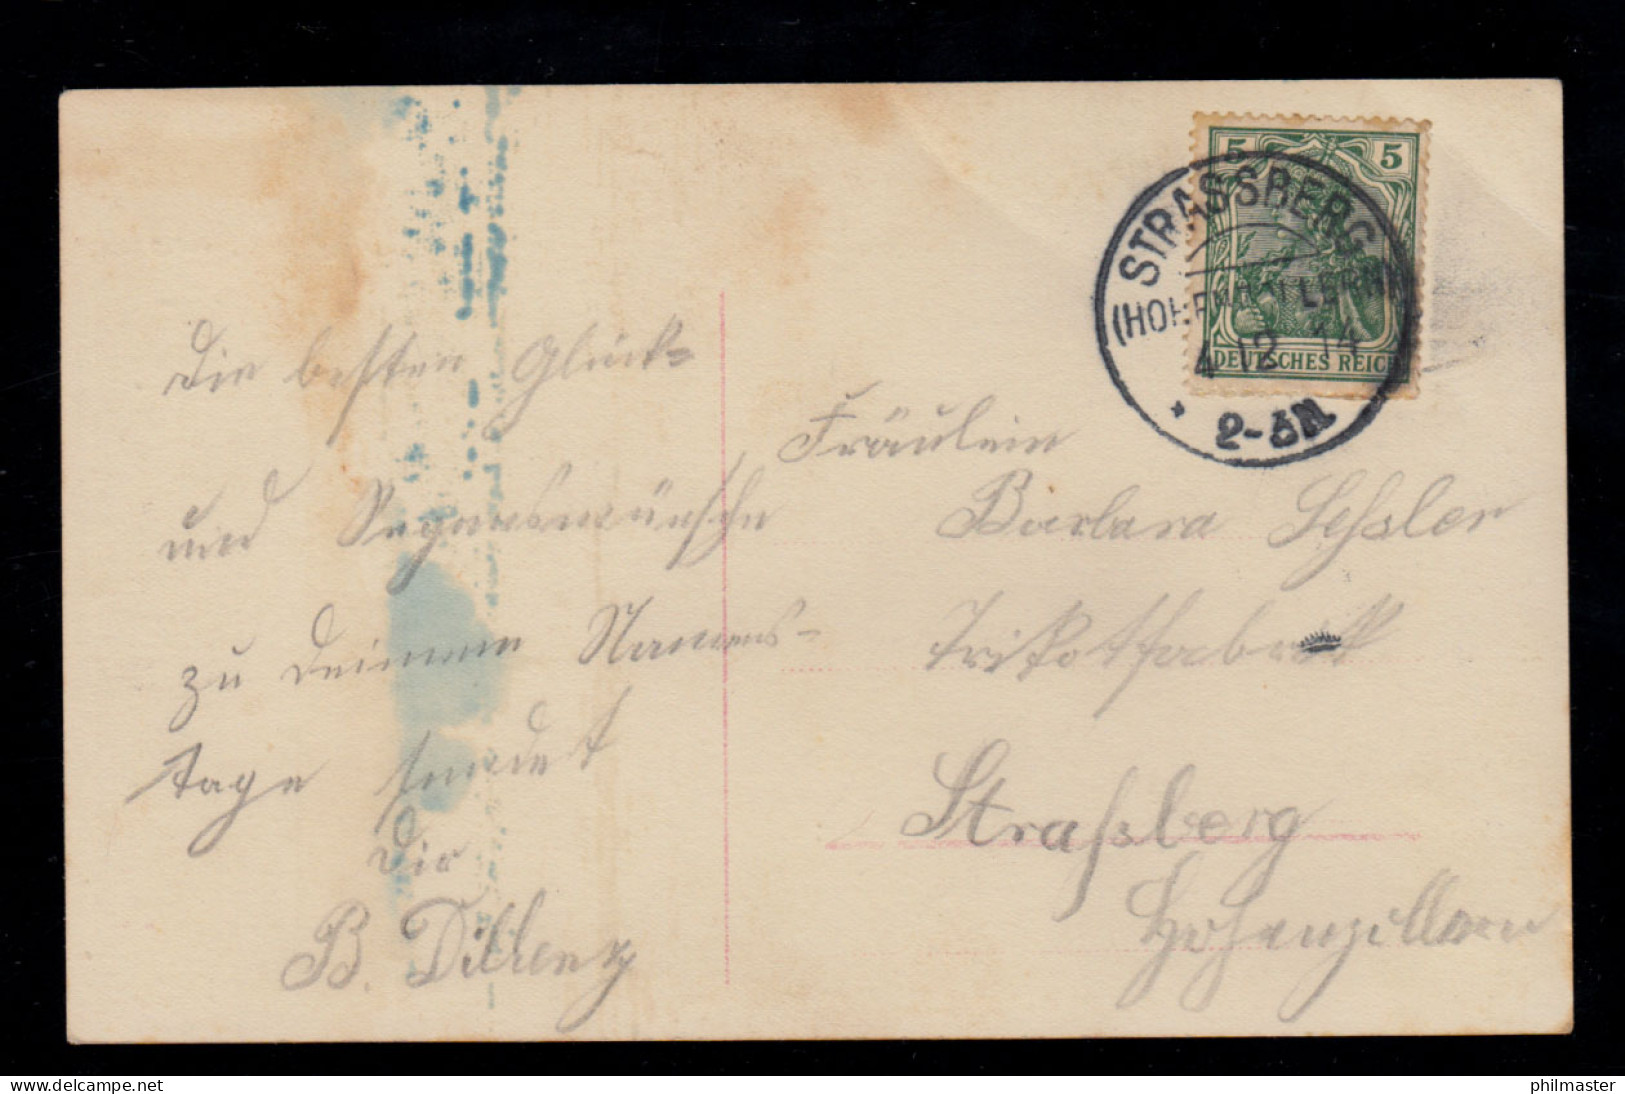 Die besten Glück-
und Segenswünsche
zu Deinem Namens-
tage sendet
Dir
B. Dillenz
5 5
DEUTSCHES REICH
STRASSBERG
(HOHENZOLLERN)
4 12 14
2-3N
Fräulein
Barbara Seßler
Trikotfabrik
Straßberg
Hohenzollern
delcampe.net
philmaster